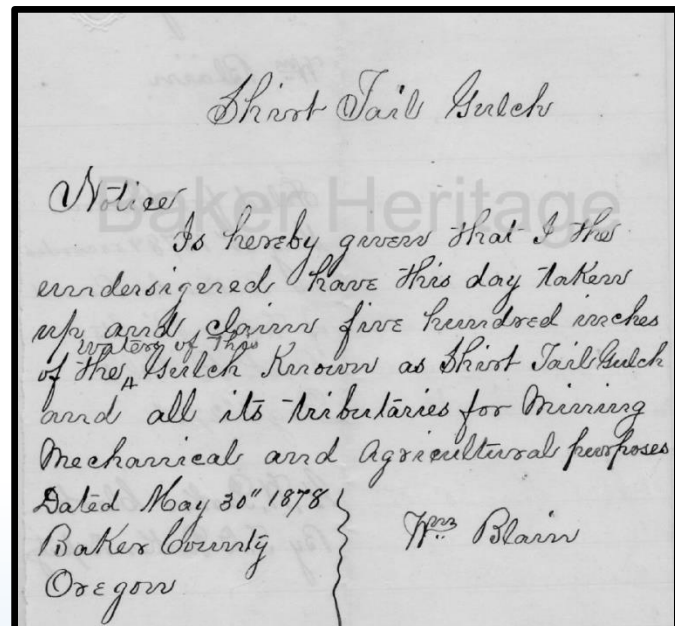 Shirt Tail Gulch
Baker Heritage
Notice
Is hereby given that I the
undersigned have this day taken
up and claim five hundred inches
of the ^ waters of this Gulch Known as Shirt Tail Gulch
and all its tributaries for Mining
Mechanical and Agricultural purposes
Dated May 30" 1878
Wm Blain
Baker County
Oregon